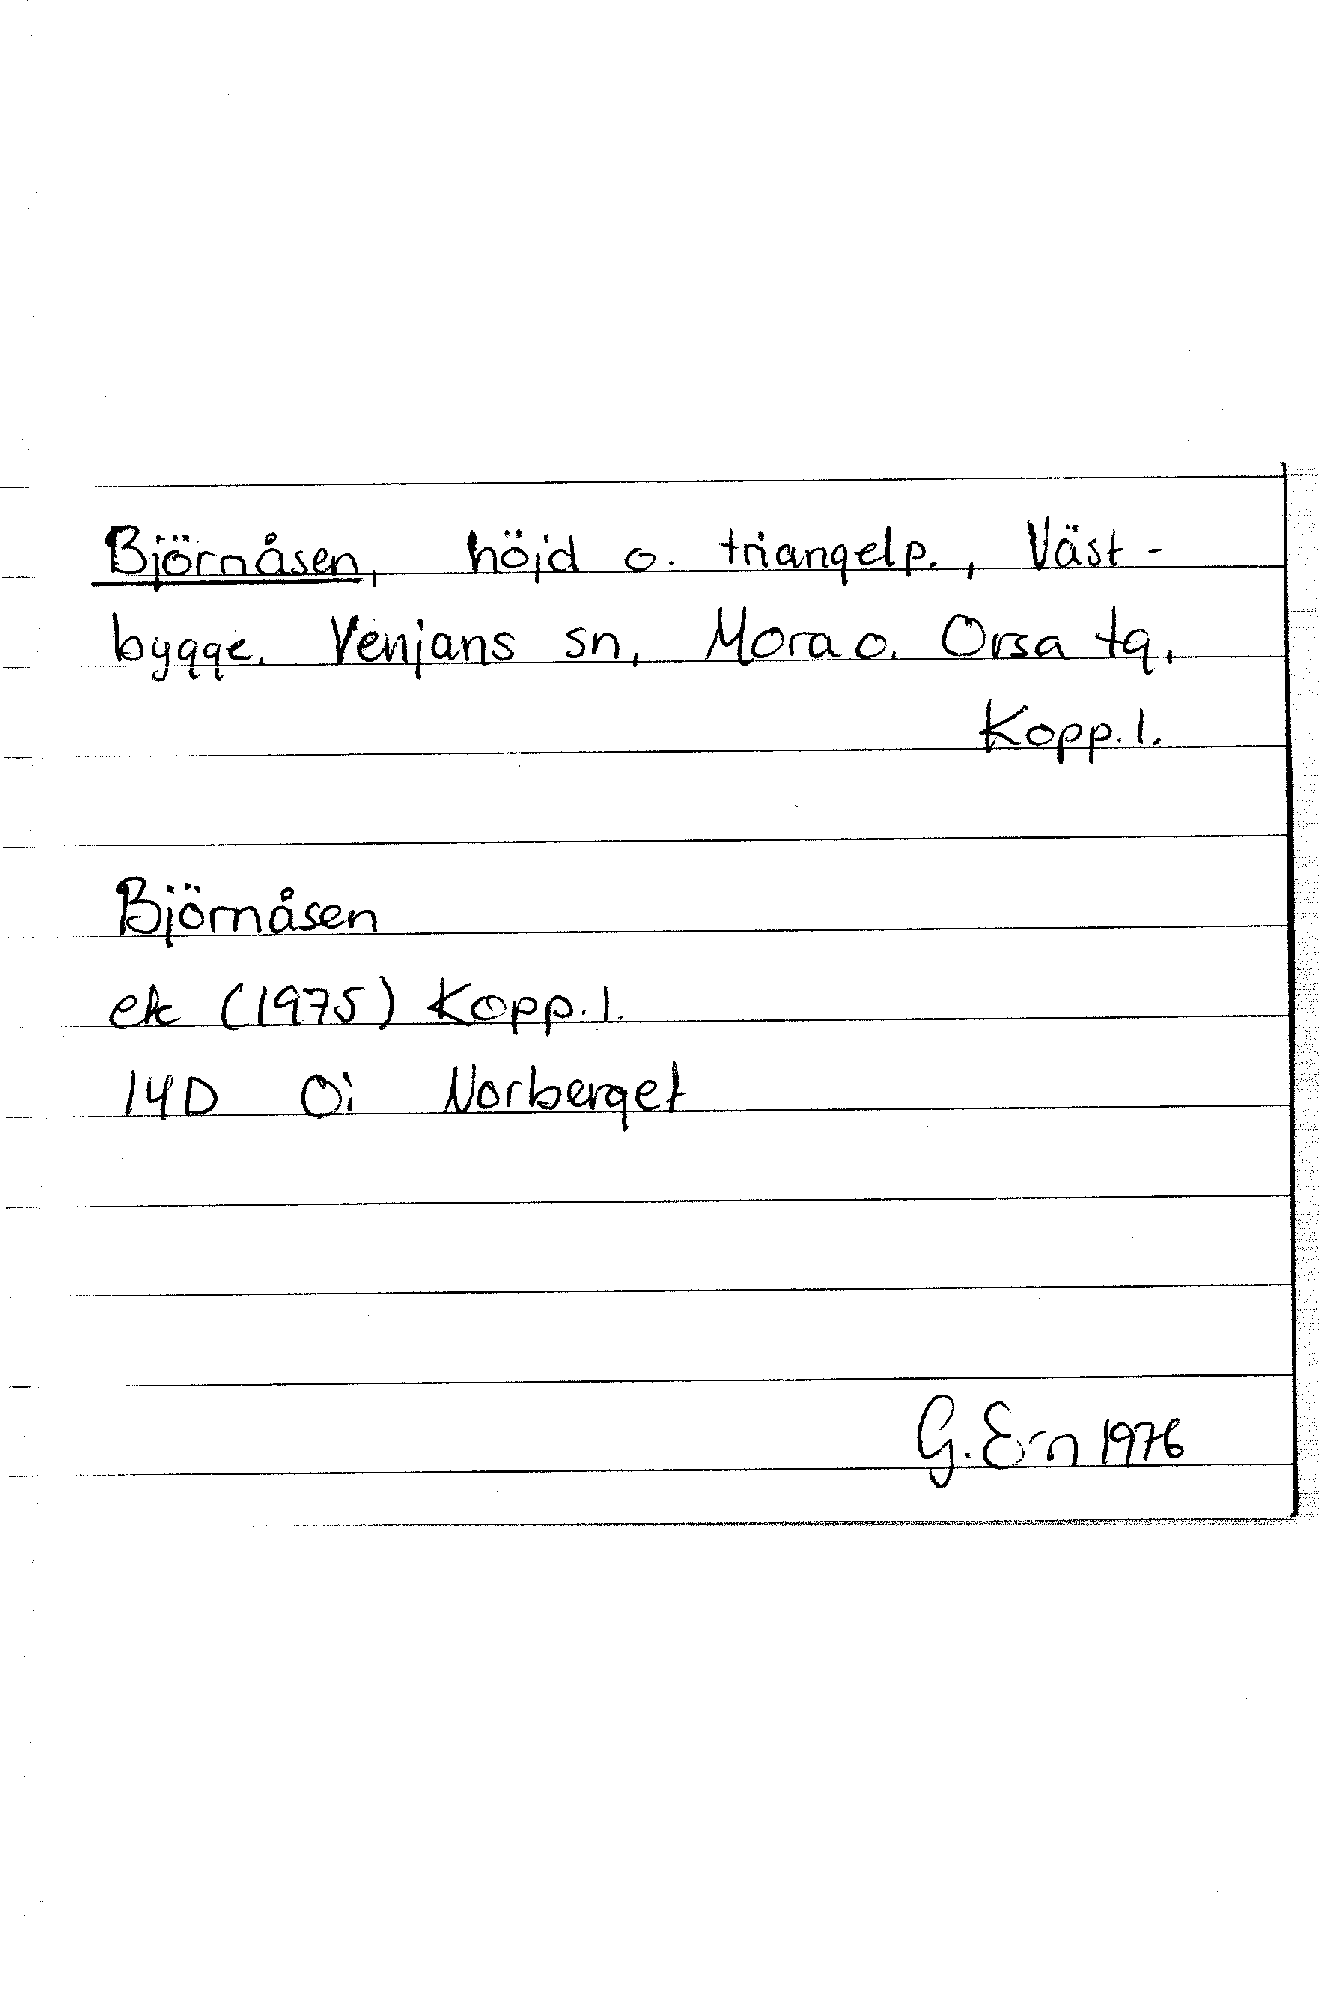 Björnåsen, höjd o. triangelp., Väst-
bygge, Venjans sn, Mora o. Orsa tg,
Kopp. l.
Björnåsen
ek (1975) Kopp. l.
14D 0i Norberget
G. Ern 1976